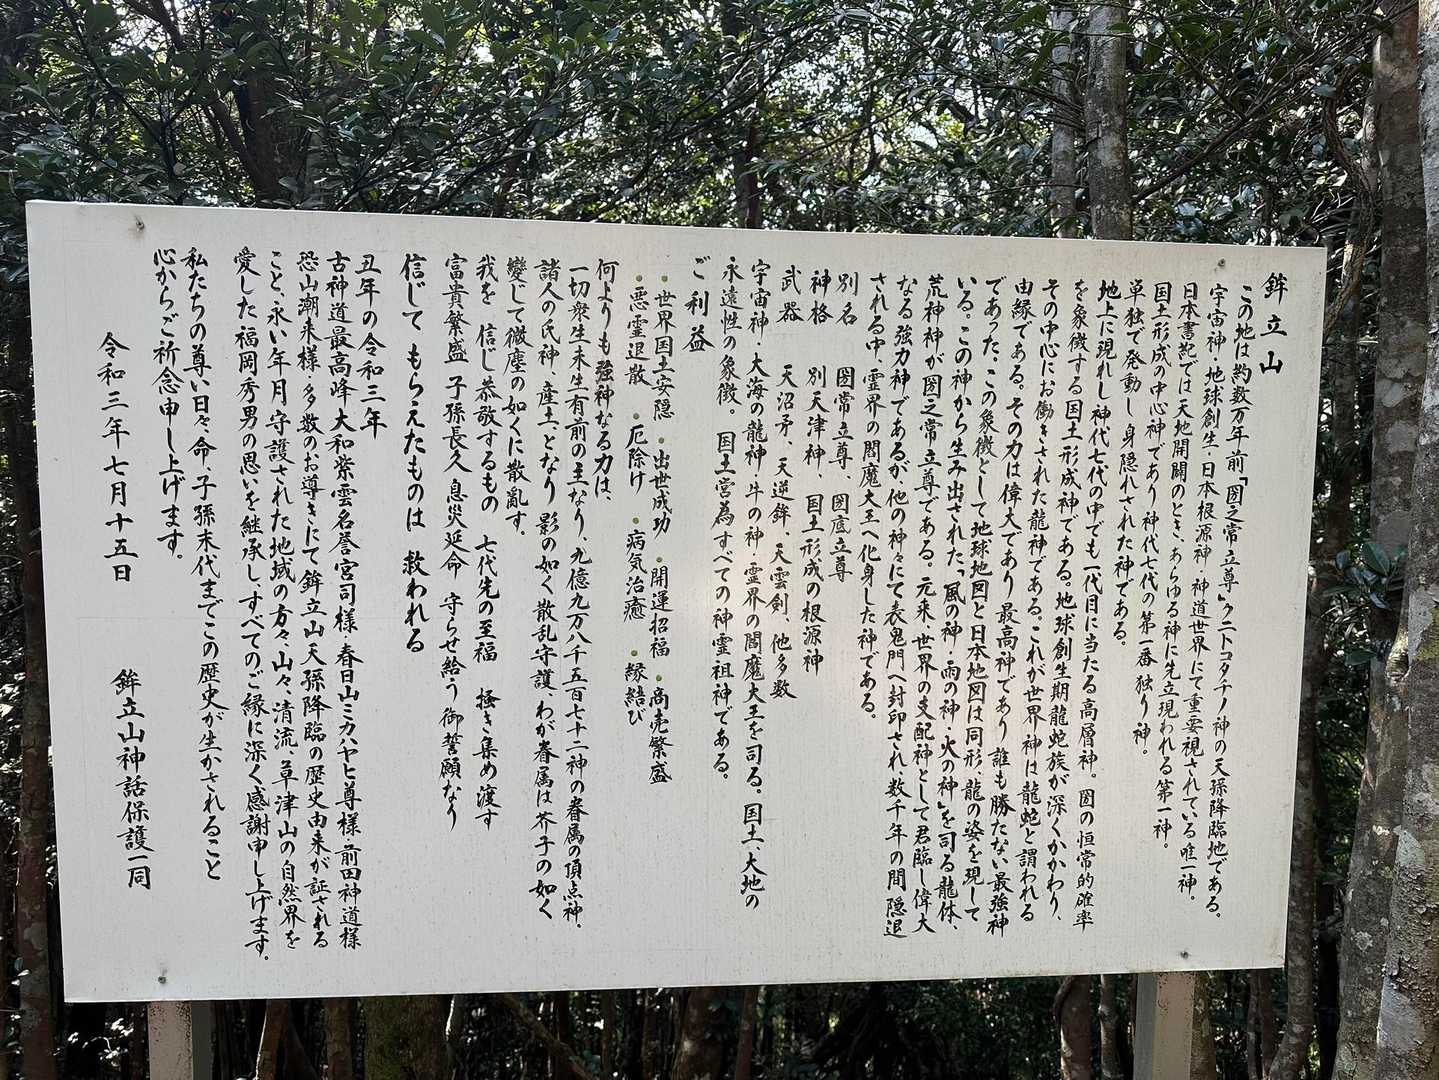 鉾立山
この地は約数万年前「圀之常立尊」クニトコタチノ神の天孫降臨地である。
宇宙神・地球創生・日本根源神・神道世界にて重要視されている唯一神。
日本書紀では天地開闢のとき、あらゆる神に先立現われる第一神。
国土形成の中心神であり神代七代の第一番独り神。
単独で発動し身隠れされた神である。
地上に現れし神代七代の中でも一代目に当たる高層神。圀の恒常的確率
を象徴する国土形成神である。地球創生期龍蛇族が深くかかわり、
その中心にお働きされた龍神である。これが世界神は龍蛇と謂われる
由縁である。その力は偉大であり最高神であり誰も勝たない最強神
であった。この象徴として地球地図と日本地図は同形・龍の姿を現して
いる。この神から生み出された、「風の神・雨の神・火の神」を司る龍体、
荒神神が圀之常立尊である。元来・世界の支配神として君臨し偉大
なる強力神であるが、他の神々にて表鬼門へ封印され、数千年の間隠退
される中、霊界の閻魔大王へ化身した神である。
別名 圀常立尊、圀底立尊
神格 別天津神、国土形成の根源神
武器 天沼矛、天逆鉾、天雲剣、他多数
宇宙神・大海の龍神・牛の神・霊界の閻魔大王を司る。国土、大地の
永遠性の象徴。国土営為すべての神霊祖神である。
ご利益
・世界国土安隠 ・出世成功 ・開運招福 ・商売繁盛
・悪霊退散 ・厄除け ・病気治癒 ・縁結び
何よりも強神なる力は、
一切衆生未生有前の主なり、九億九万八千五百七十二神の眷属の頂点神。
諸人の氏神、産土、となり影の如く散乱守護、わが眷属は芥子の如く
變して微塵の如くに散亂す。
我を 信じ恭敬するもの 七代先の至福 掻き集め渡す
富貴繁盛 子孫長久 息災延命 守らせ給う御誓願なり
信じて もらえたものは 救われる
丑年の令和三年
古神道最高峰 大和紫雲名誉宮司様・春日山ミカハヤヒ尊様・前田神道様
恐山潮来様・多数のお導きにて鉾立山天孫降臨の歴史由来が証される
こと、永い年月守護された地域の方々、山々、清流、草津山の自然界を
愛した福岡秀男の思いを継承し、すべてのご縁に深く感謝申し上げます。
私たちの尊い日々、命、子孫末代までこの歴史が生かされること
心からご祈念申し上げます。
令和三年七月十五日 鉾立山神話保護一同